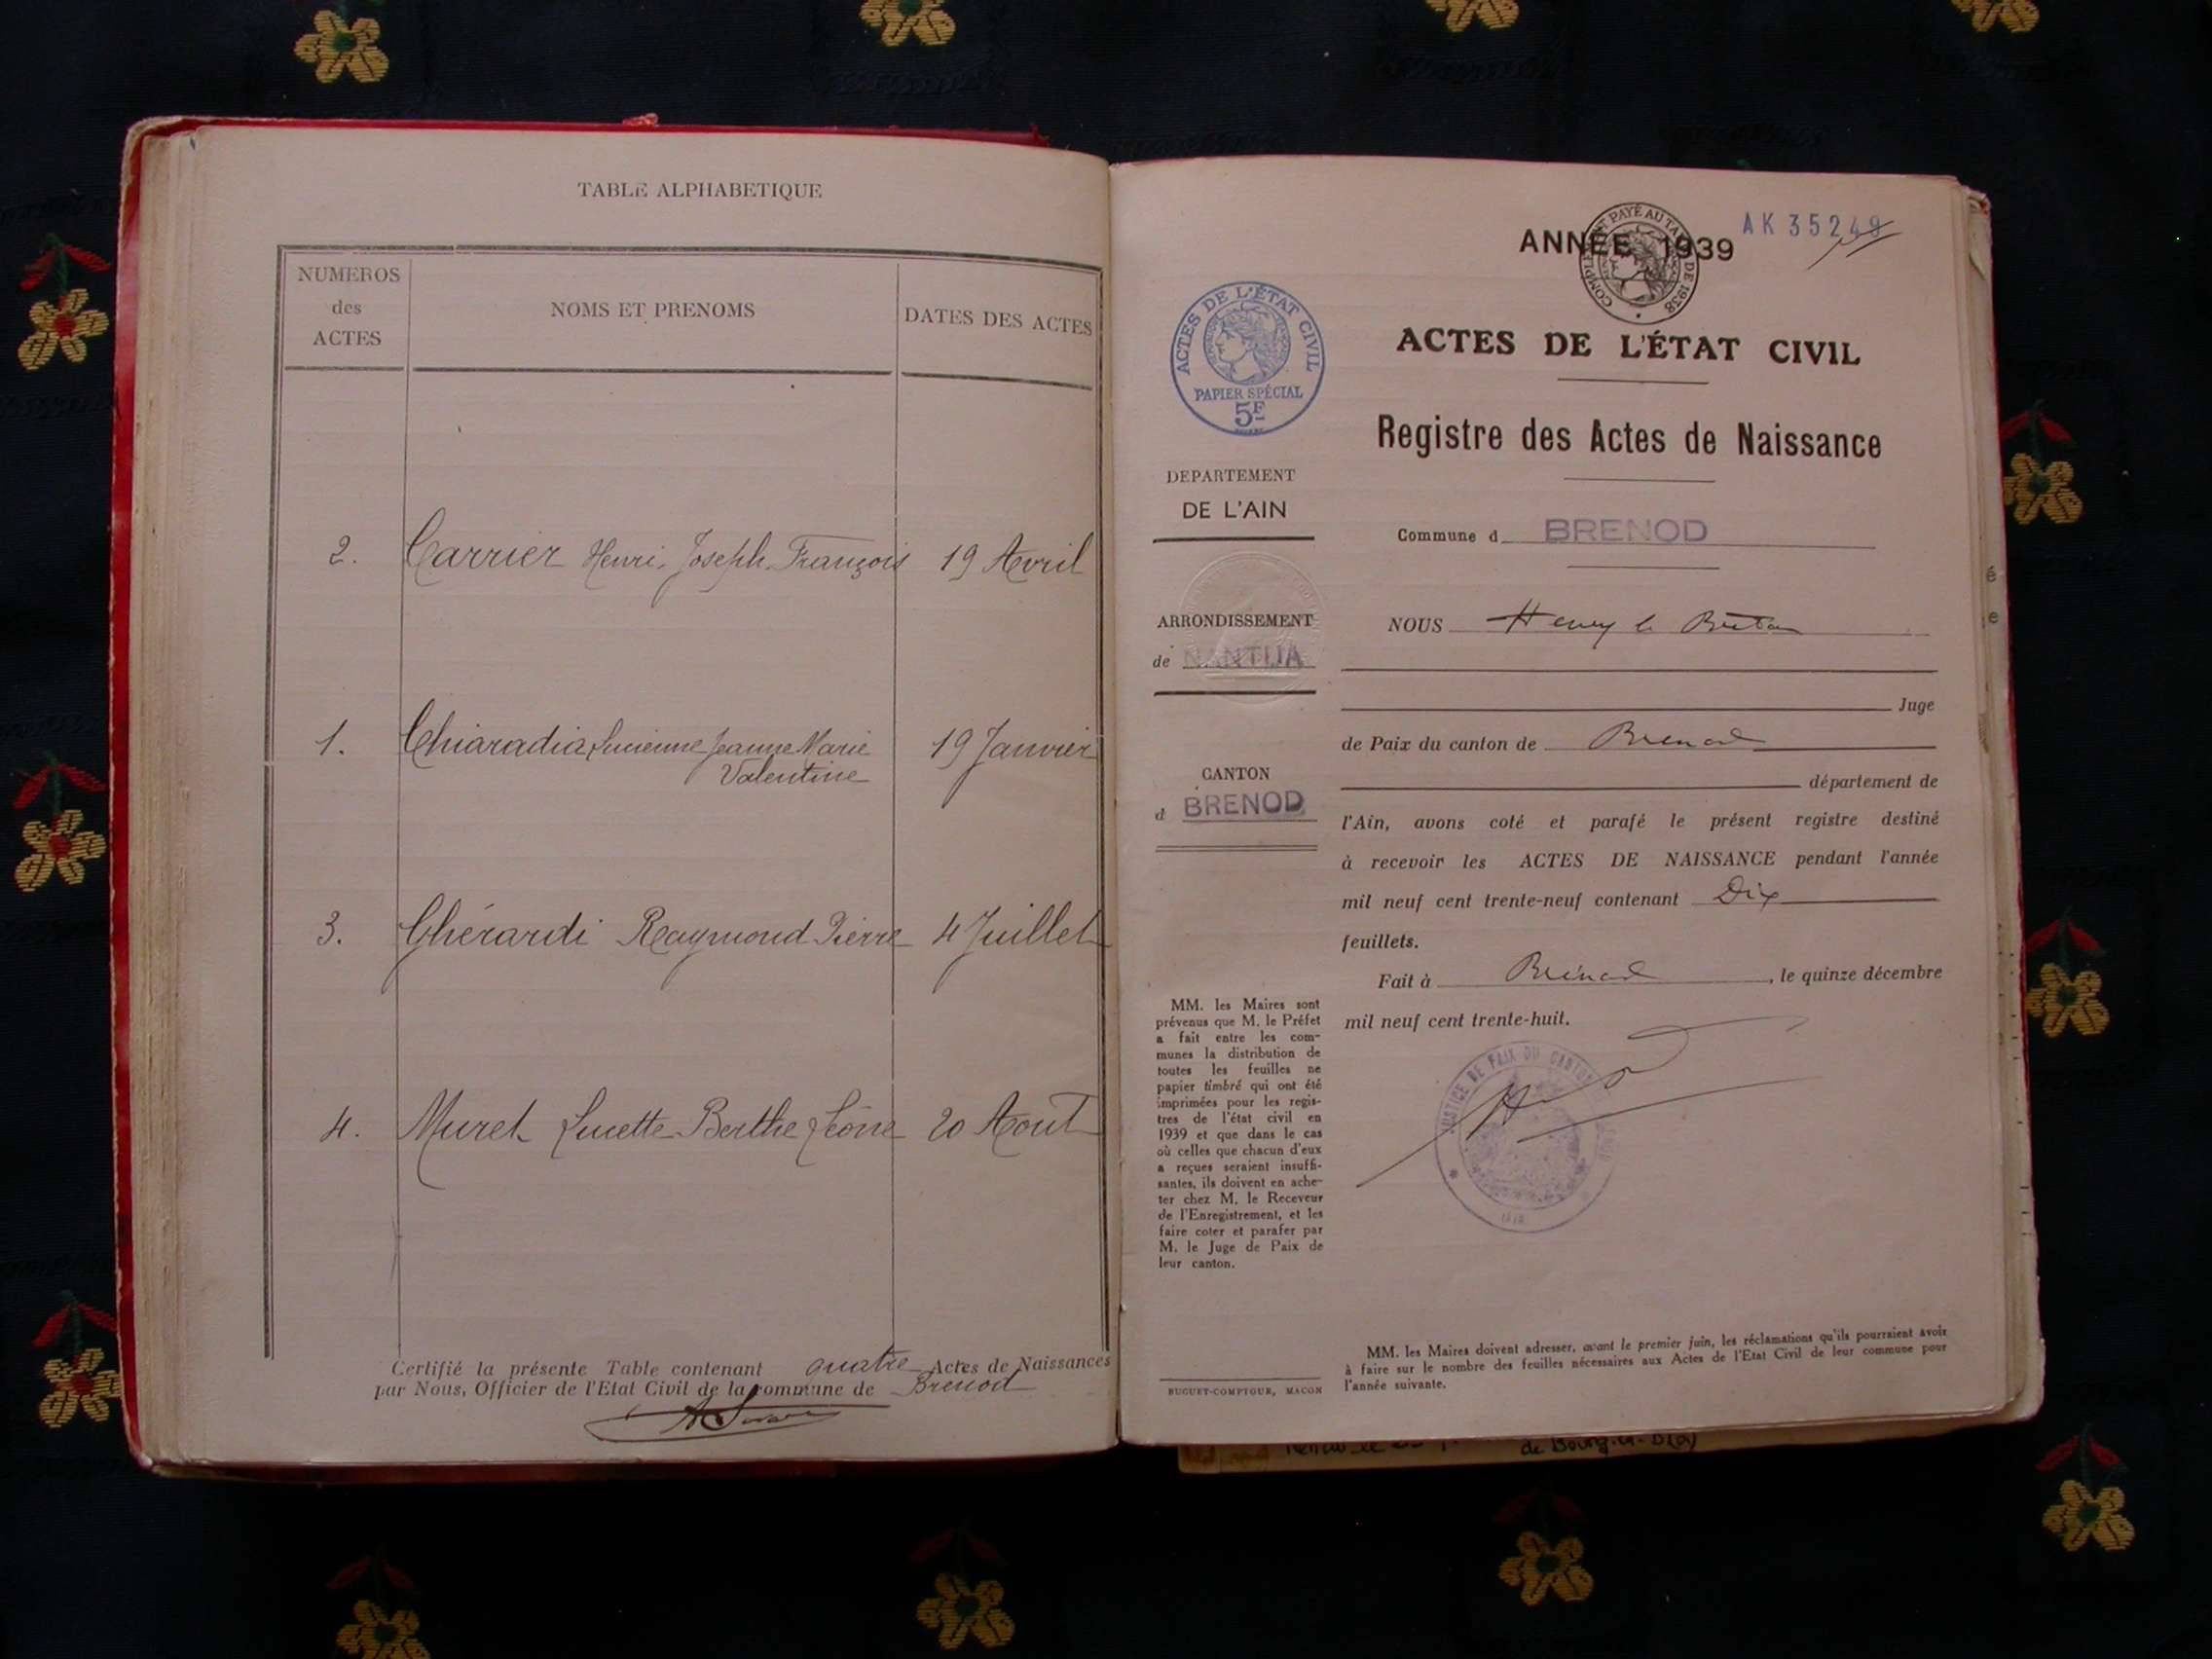 TABLE ALPHABETIQUE
NUMEROS
des
ACTES
NOMS ET PRENOMS
DATES DES ACTES
2. Carrier Henri Joseph François 19 Avril
1. Chiaradia Lucienne Jeanne Marie 19 Janvier
Valentine
3. Ghérardi Raymond Pierre 4 Juillet
4. Muret Lucette Berthe Léone 20 Aout
Certifié la présente Table contenant quatre Actes de Naissances
par Nous, Officier de l'Etat Civil de la commune de Brenod
ANNÉE 1939
AK 35249
COMPLÉMENT PAYÉ AU TARIF DE 1938
ACTES DE L'ÉTAT CIVIL
RÉPUBLIQUE FRANÇAISE
PAPIER SPÉCIAL
5F
ACTES DE L'ÉTAT CIVIL
Registre des Actes de Naissance
DEPARTEMENT
DE L'AIN
Commune d BRENOD
ARRONDISSEMENT
de NANTUA
CANTON
d BRENOD
NOUS Henry le Breton
Juge
de Paix du canton de Brenod
département de
l'Ain, avons coté et parafé le présent registre destiné
à recevoir les ACTES DE NAISSANCE pendant l'année
mil neuf cent trente-neuf contenant Dix
feuillets.
Fait à Brénod, le quinze décembre
mil neuf cent trente-huit.
JUSTICE DE PAIX DU CANTON
AIN
MM. les Maires sont
prévenus que M. le Préfet
a fait entre les com-
munes la distribution de
toutes les feuilles ne
papier timbré qui ont été
imprimées pour les regis-
tres de l'état civil en
1939 et que dans le cas
où celles que chacun d'eux
a reçues seraient insuffi-
santes, ils doivent en ache-
ter chez M. le Receveur
de l'Enregistrement, et les
faire coter et parafer par
M. le Juge de Paix de
leur canton.
BUGUET-COMPTOUR, MACON
MM. les Maires doivent adresser, avant le premier juin, les réclamations qu'ils pourraient avoir
à faire sur le nombre des feuilles nécessaires aux Actes de l'Etat Civil de leur commune pour
l'année suivante.
é
e